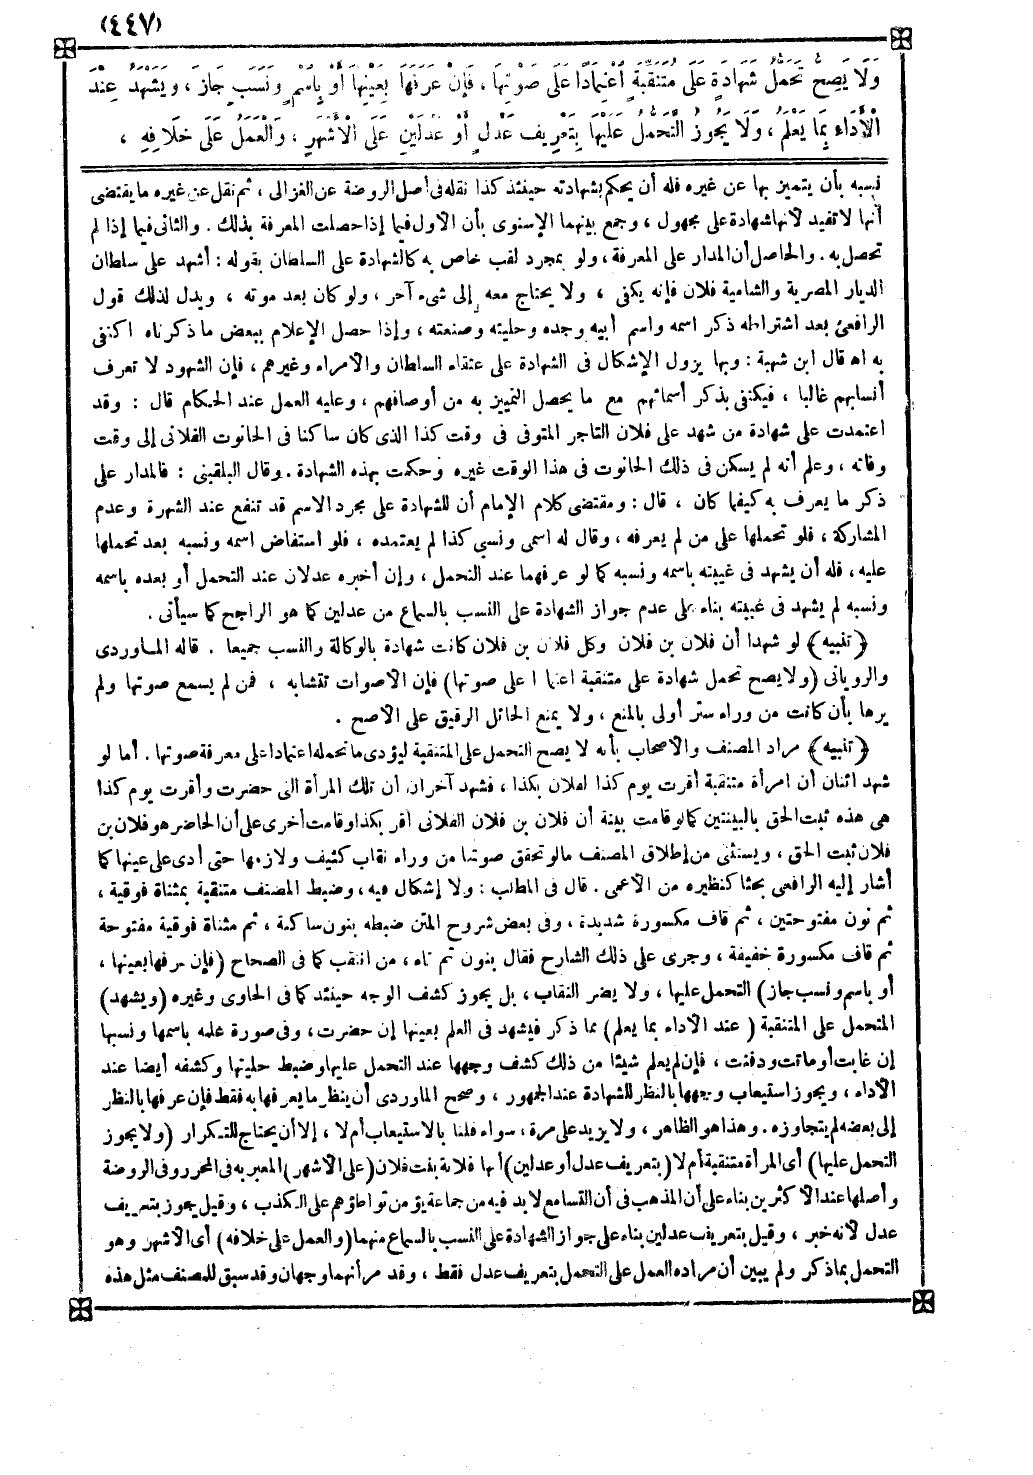 (٤٤٧)
وَلَا يَصِحُّ تَحَمُّلُ شَهَادَةٍ عَلَى مُتَنَقِّبَةٍ اعْتِمَادًا عَلَى صَوْتِهَا ، فَإِنْ عَرَفَهَا بِعَيْنِهَا أَوْ بِاسْمٍ وَنَسَبٍ جَازَ ، وَيَشْهَدُ عِنْدَ
الْأَدَاءِ بِمَا يَعْلَمُ ، وَلَا يَجُوزُ التَّحَمُّلُ عَلَيْهَا بِتَعْرِيفِ عَدْلٍ أَوْ عَدْلَيْنِ عَلَى الْأَشْهَرِ ، وَالْعَمَلُ عَلَى خِلَافِهِ ،
نسبه بأن يتميز بها عن غيره فله أن يحكم بشهادته حينئذ كذا نقله فى أصل الروضة عن الغزالى ، ثم نقل عن غيره ما يقتضى
أنها لا تفيد لأنها شهادة على مجهول ، وجمع بينهما الإسنوى بأن الأول فيما إذا حصلت المعرفة بذلك . والثانى فيما إذا لم
تحصل به . والحاصل أن المدار على المعرفة ، ولو بمجرد لقب خاص به كالشهادة على السلطان بقوله : أشهد على سلطان
الديار المصرية والشامية فلان فإنه يكفى ، ولا يحتاج معه إلى شىء آخر ، ولو كان بعد موته ، ويدل لذلك قول
الرافعى بعد اشتراطه ذكر اسمه واسم أبيه وجده وحليته وصنعته ، وإذا حصل الإعلام ببعض ما ذكرناه اكتفى
به اه قال ابن شهبة : وبها يزول الإشكال فى الشهادة على عتقاء السلطان والأمراء وغيرهم ، فإن الشهود لا تعرف
أنسابهم غالبا ، فيكتفى بذكر أسمائهم مع ما يحصل التمييز به من أوصافهم ، وعليه العمل عند الحكام قال : وقد
اعتمدت على شهادة من شهد على فلان التاجر المتوفى فى وقت كذا الذى كان ساكنا فى الحانوت الفلانى إلى وقت
وفاته ، وعلم أنه لم يسكن فى ذلك الحانوت فى هذا الوقت غيره وحكمت بهذه الشهادة . وقال البلقينى : فالمدار على
ذكر ما يعرف به كيفما كان ، قال : ومقتضى كلام الإمام أن للشهادة على مجرد الاسم قد تنفع عند الشهرة وعدم
المشاركة ، فلو تحملها على من لم يعرفه ، وقال له اسمى ونسبى كذا لم يعتمده ، فلو استفاض اسمه ونسبه بعد تحملها
عليه ، فله أن يشهد فى غيبته باسمه ونسبه كما لو عرفهما عند التحمل ، وإن أخبره عدلان عند التحمل أو بعده باسمه
ونسبه لم يشهد فى غيبته بناء على عدم جواز الشهادة على النسب بالسماع من عدلين كما هو الراجح كما سيأتى .
﴿ تنبيه ﴾ لو شهدا أن فلان بن فلان وكل فلان بن فلان كانت شهادة بالوكالة والنسب جميعا . قاله الماوردى
والرويانى (ولا يصح تحمل شهادة على متنقبة اعتمادا على صوتها) فإن الأصوات تتشابه ، فمن لم يسمع صوتها ولم
يرها بأن كانت من وراء ستر أولى بالمنع ، ولا يمنع الحائل الرقيق على الأصح .
﴿ تنبيه ﴾ مراد المصنف والأصحاب بأنه لا يصح التحمل على المتنقبة ليؤدى ما تحمله اعتمادا على معرفة صوتها . أما لو
شهد اثنان أن امرأة متنقبة أقرت يوم كذا لفلان بكذا ، فشهد آخران أن تلك المرأة التى حضرت وأقرت يوم كذا
هى هذه ثبت الحق بالبينتين كما لو قامت بينة أن فلان بن فلان الفلانى أقر بكذا وقامت أخرى على أن الحاضر هو فلان بن
فلان ثبت الحق ، ويستثنى من إطلاق المصنف ما لو تحقق صوتها من وراء نقاب كثيف ولازمها حتى أدى على عينها كما
أشار إليه الرافعى بحثا كنظيره من الأعمى . قال فى المطلب : ولا إشكال فيه ، وضبط المصنف متنقبة بمثناة فوقية ،
ثم نون مفتوحتين ، ثم قاف مكسورة شديدة ، وفى بعض شروح المتن ضبطه بنون ساكنة ، ثم مثناة فوقية مفتوحة
ثم قاف مكسورة خفيفة ، وجرى على ذلك الشارح فقال بنون ثم تاء ، من انتقب كما فى الصحاح (فإن عرفها بعينها ،
أو باسم ونسب جاز) التحمل عليها ، ولا يضر النقاب ، بل يجوز كشف الوجه حينئذ كما فى الحاوى وغيره (ويشهد)
المتحمل على المتنقبة ( عند الأداء بما يعلم) مما ذكر فيشهد فى العلم بعينها إن حضرت ، وفى صورة علمه باسمها ونسبها
إن غابت أو ماتت ودفنت ، فإن لم يعلم شيئا من ذلك كشف وجهها عند التحمل عليها وضبط حليتها وكشفه أيضا عند
الأداء ، ويجوز استيعاب وجهها بالنظر للشهادة عند الجمهور ، وصحح الماوردى أن ينظر ما يعرفها به فقط فإن عرفها بالنظر
إلى بعضه لم يتجاوزه . وهذا هو الظاهر ، ولا يزيد على مرة ، سواء قلنا بالاستيعاب أم لا ، إلا أن يحتاج للتكرار (ولا يجوز
التحمل عليها) أى المرأة متنقبة أم لا (بتعريف عدل أو عدلين) أنها فلانة بنت فلان (على الأشهر) المعبر به فى المحرر وفى الروضة
وأصلها عند الأكثرين بناء على أن المذهب فى أن التسامع لا بد فيه من جماعة يؤمن تواطؤهم على الكذب ، وقيل يجوز بتعريف
عدل لأنه خبر ، وقيل بتعريف عدلين بناء على جواز الشهادة على النسب بالسماع منهما (والعمل على خلافه) أى الأشهر وهو
التحمل بما ذكر ولم يبين أن مراده العمل على التحمل بتعريف عدل فقط ، وقد مر أنهما وجهان وقد سبق للمصنف مثل هذه